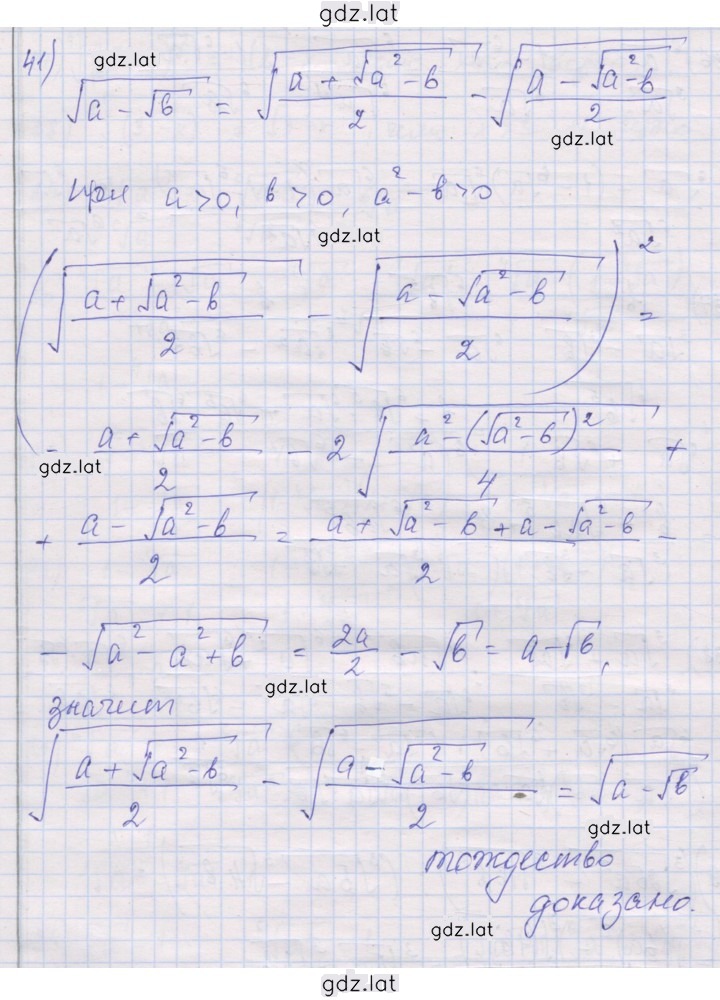 gdz.lat
41)
gdz.lat
√(a - √b) = √((a + √(a² - b))/2) - √((a - √(a² - b))/2)
gdz.lat
при a > 0, b > 0, a² - b > 0
gdz.lat
(√((a + √(a² - b))/2) - √((a - √(a² - b))/2))² =
= (a + √(a² - b))/2 - 2√((a² - (√(a² - b))²)/4) +
gdz.lat
+ (a - √(a² - b))/2 = (a + √(a² - b) + a - √(a² - b))/2 -
- √(a² - a² + b) = 2a/2 - √b = a - √b,
gdz.lat
значит
√((a + √(a² - b))/2) - √((a - √(a² - b))/2) = √(a - √b)
gdz.lat
тождество
доказано.
gdz.lat
gdz.lat